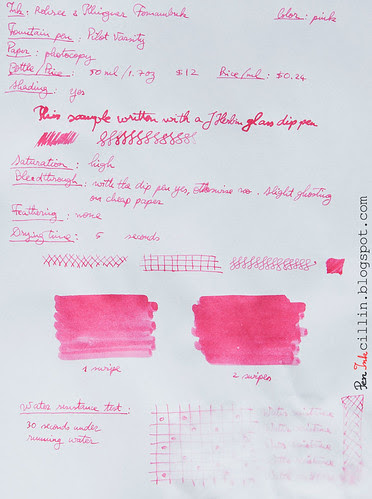 Ink: Rohrer & Klingner Fernambuk Color: pink
Fountain pen: Pilot Varsity
Paper: photocopy
Bottle/Price: 50 ml/1.7oz $12 Price/ml: $0.24
Shading: yes
This sample written with a J Herbin glass dip pen
Saturation: high
Bleedthrough: with the dip pen yes, otherwise no. Slight ghosting
on cheap paper
Feathering: none
Drying time: 5 seconds
1 swipe
2 swipes
Water resistance test:
30 seconds under
running water
Water resistance
Water resistance
Water resistance
Water resistance
Pen Ink cillin.blogspot.com